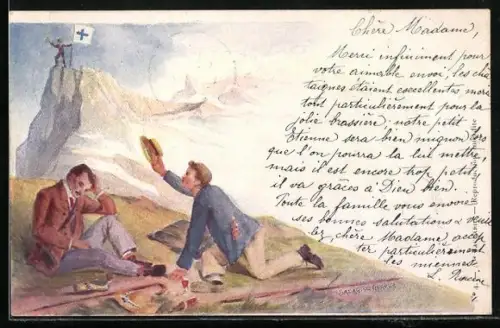 Chère Madame,
Merci infiniment pour
votre aimable envoi, les châ
taignes étaient excellentes mais
tout particulièrement pour la
jolie brassière: notre petit
Etienne sera bien mignon lors
que l'on pourra la lui mettre,
mais il est encore trop petit,
il va grâces à Dieu bien.
Toute la famille vous envoie
ses bonnes salutations &
chère Madame accep
ter particulièrement
les miennes